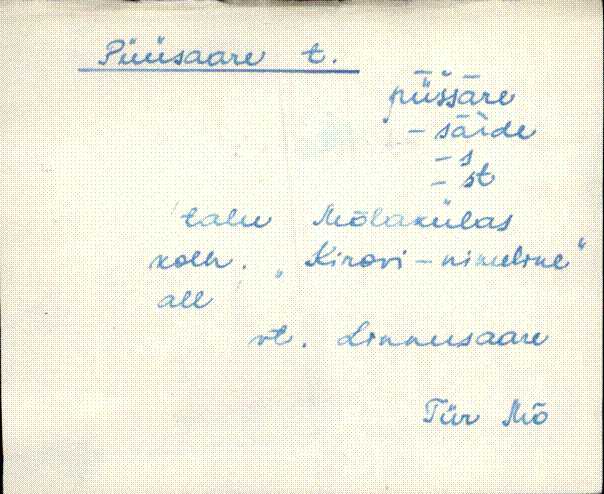 Püüsaare t.
pǖšsāre
– sāide
– s
– st
talu Mõlakülas
kolh. „Kirovi-nimeline"
all
vt. Linnusaare
Tür Mõ